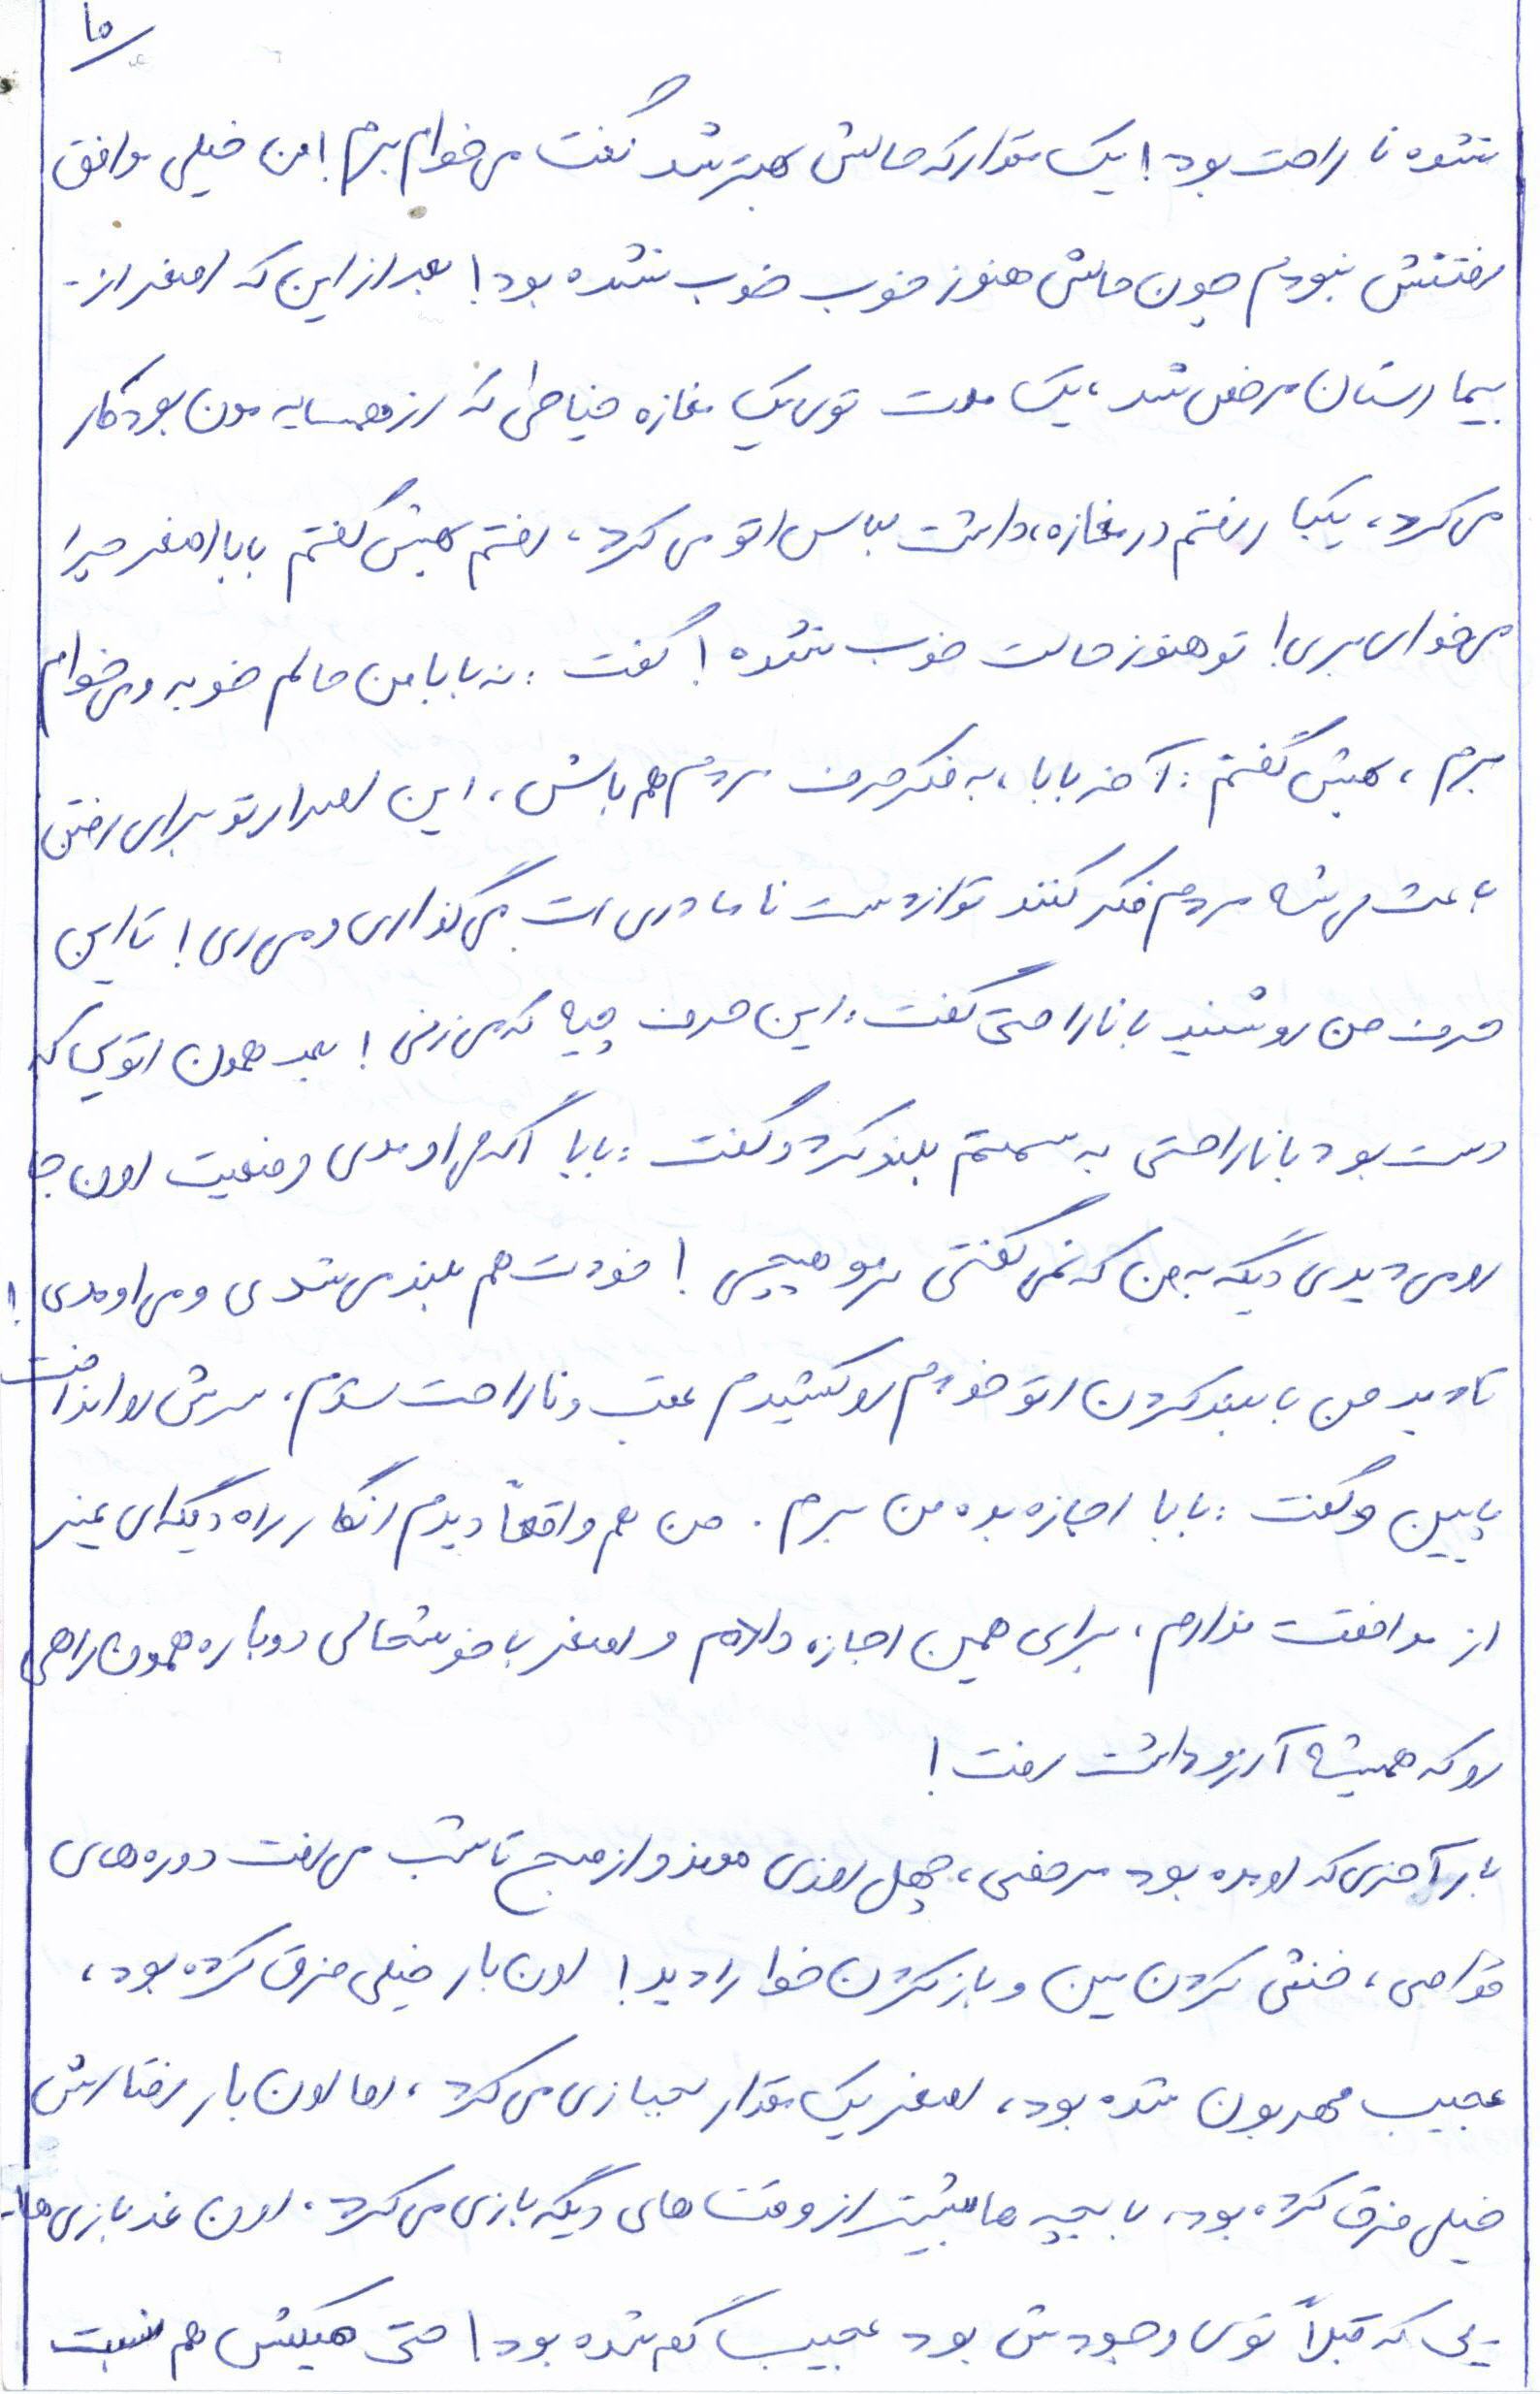 ۱۵
نشده ناراحت بود! یک مقدار که حالش بهتر شد گفت می خوام برم! من خیلی موافق
رفتنش نبودم چون حالش هنوز خوب خوب نشده بود! بعد از این که اصغر از -
بیمارستان مرخص شد، یک مدت توی یک مغازه خیاطی که از همسایه مون بود کار
می کرد، یکبار رفتم در مغازه، داشت لباس اتو می کرد، رفتم بهش گفتم بابا اصغر چرا
می خوای بری! تو هنوز حالت خوب نشده! گفت: نه بابا من حالم خوبه و می خوام
برم، بهش گفتم: آخر بابا، به فکر حرف مردم هم باش، این اصرار تو برای رفتن
باعث می شه مردم فکر کنند تو از دست نامادری ات می گذاری و می ری! تا این
حرف من رو شنید با ناراحتی گفت: این حرف چیه که می زنی! بعد همون اتویی که
دست بود با ناراحتی به سمتم بلند کرد و گفت: بابا اگه می اومدی وضعیت اون جا
رو می دیدی دیگه به من که نمی گفتی نرو هیچی! خودت هم بلند می شدی و می اومدی!
تا دید من با بلند کردن اتو خودم رو کشیدم عقب و ناراحت شدم، سرش رو انداخت
پایین و گفت: بابا اجازه بده من برم. من هم واقعاً دیدم انگار راه دیگه ای غیر
از موافقت ندارم، برای همین اجازه دادم و اصغر با خوشحالی دوباره همون راهی
رو که همیشه آرزو داشت رفت!
بار آخری که اومده بود مرخصی، چهل روزی موند و از صبح تا شب می رفت دوره های
غواصی، خنثی کردن مین و باز کردن خوا را دید! اون بار خیلی فرق کرده بود،
عجیب مهربون شده بود، اصغر یک مقدار لجبازی می کرد، اما اون بار رفتارش
خیلی فرق کرده بود، با بچه ها بیشتر از وقت های دیگه بازی می کرد، اون غد بازی ها-
- یی که قبلاً توی وجودش بود عجیب گم شده بود! حتی هیکلش هم نسبت